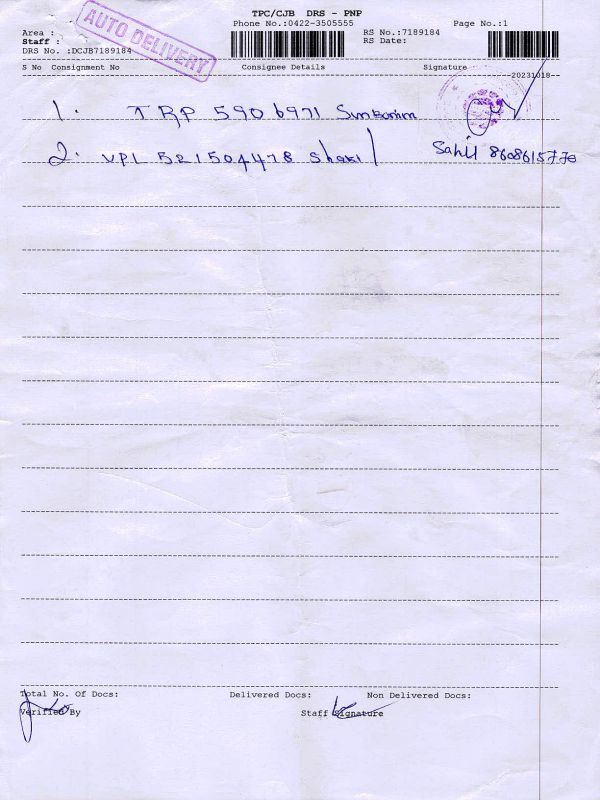 TPC/CJB DRS - PNP
AUTO DELIVERY
Phone No.:0422-3505555 Page No.:1
Area : RS No.:7189184
Staff : RS Date:
DRS No. :DCJB7189184
S No Consignment No Consignee Details Signature
--20231018--
1. TRP 5906971
2. VPL 521504478 Shakil Sahil 8608615770
Total No. Of Docs: Delivered Docs: Non Delivered Docs:
Verified By Staff Signature